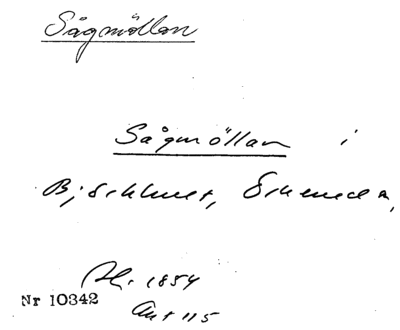 Sågmöllan
Sågmöllan i
Bjäckhult, Ekeneda,
1854
Nr 10342
Ant 115